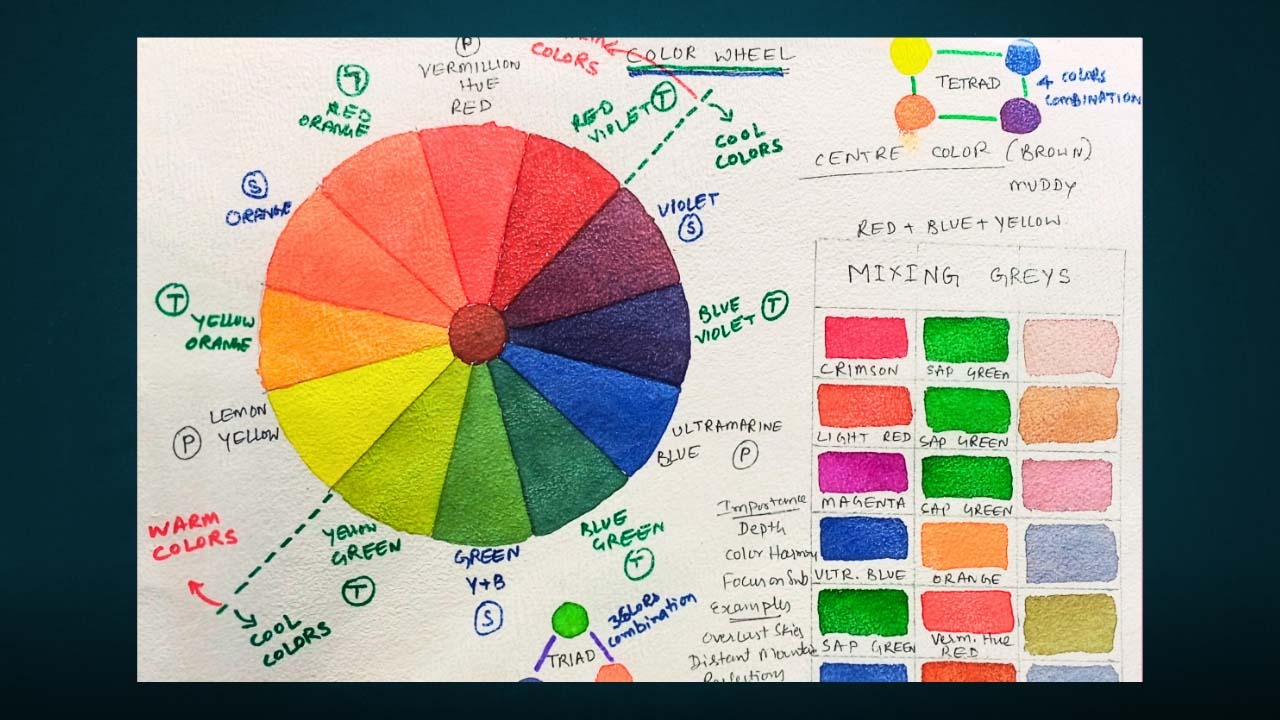 COLORS
COLOR WHEEL
P
VERMILLION
HUE
RED
T
RED
ORANGE
RED
VIOLET T
COOL
COLORS
S
ORANGE
VIOLET
S
T
YELLOW
ORANGE
BLUE
VIOLET T
LEMON
P YELLOW
ULTRAMARINE
BLUE P
WARM
COLORS
YELLOW
GREEN
T
GREEN
Y+B
S
BLUE
GREEN
T
COOL
COLORS
TRIAD
3 COLORS
combination
TETRAD
4 COLORS
COMBINATION
CENTRE COLOR (BROWN)
MUDDY
RED + BLUE + YELLOW
MIXING GREYS
CRIMSON SAP GREEN
LIGHT RED SAP GREEN
MAGENTA SAP GREEN
ULTR. BLUE ORANGE
SAP GREEN Verm. Hue
RED
Importance
Depth
Color Harmony
Focus on Sub
Examples
Overcast Skies
Distant
Reflections